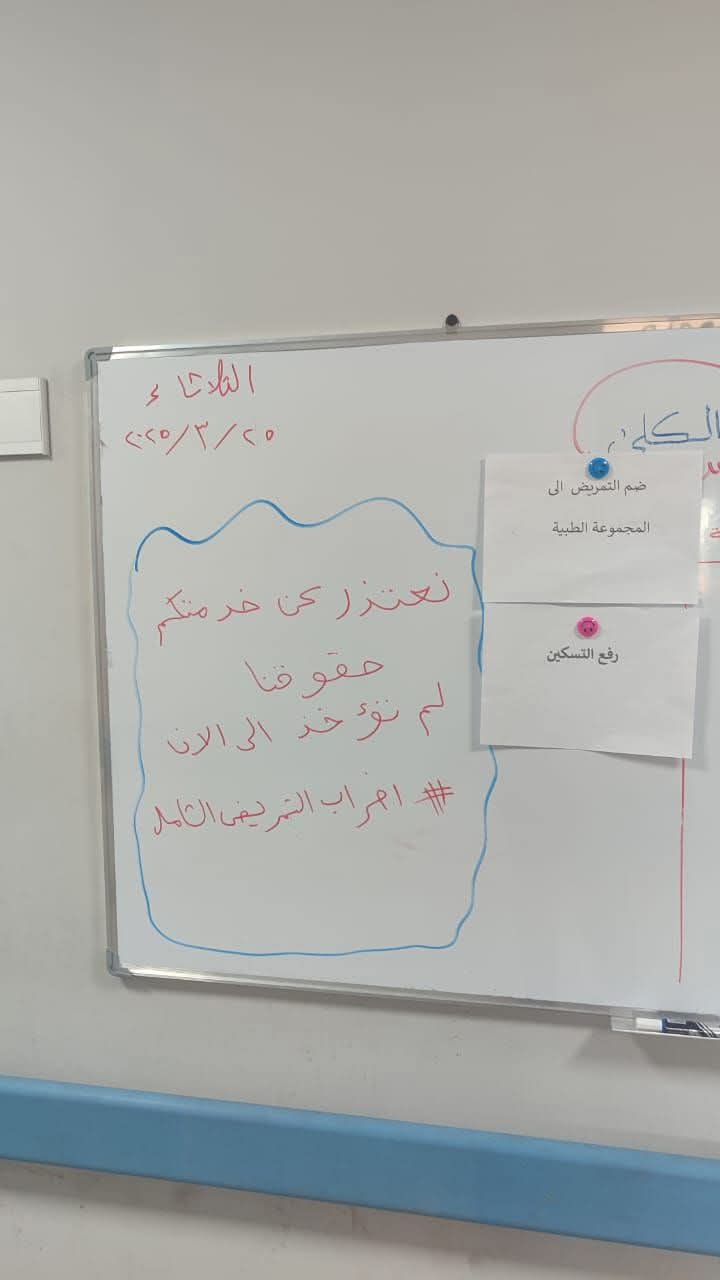 الثلاثاء
٢٠٢٥/٣/٢٥
نعتذر عن خدمتكم
حقوقنا
لم تؤخذ الى الان
# اضراب التمريض الشامل
الكلى
ضم التمريض الى
المجموعة الطبية
رفع التسكين